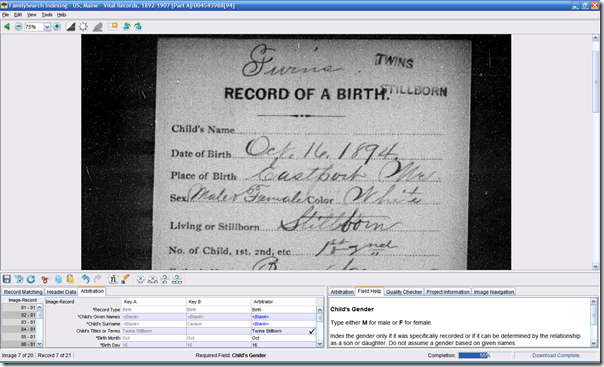 FamilySearch Indexing - US, Maine - Vital Records, 1892-1907 [Part A]/004543988[94]
File Edit View Tools Help
75%
Twins
TWINS
STILLBORN
RECORD OF A BIRTH.
Child's Name
Date of Birth Oct. 16, 1894.
Place of Birth Eastport Me
Sex Male & Female Color White
Living or Stillborn Stillborn
No. of Child, 1st, 2nd, etc 1st 2nd
Record Matching Header Data Arbitration
Arbitration Field Help Quality Checker Project Information Image Navigation
Image-Record Image-Record Key A Key B Arbitrator
01 - 01 *Record Type Birth Birth Birth
02 - 01 *Child's Given Names <Blank> <Blank> <Blank>
03 - 01 *Child's Surname <Blank> Carson <Blank>
04 - 01 Child's Titles or Terms Twins Stillborn Twins Stillborn
05 - 01 *Birth Month Oct Oct Oct
06 - 01 *Birth Day 16 16 16
Child's Gender
Type either M for male or F for female.
Index the gender only if it was specifically recorded or if it can be determined by the relationship
as a son or daughter. Do not assume a gender based on given names.
Image 7 of 20 Record 7 of 21 Required Field: Child's Gender Completion: Download Complete